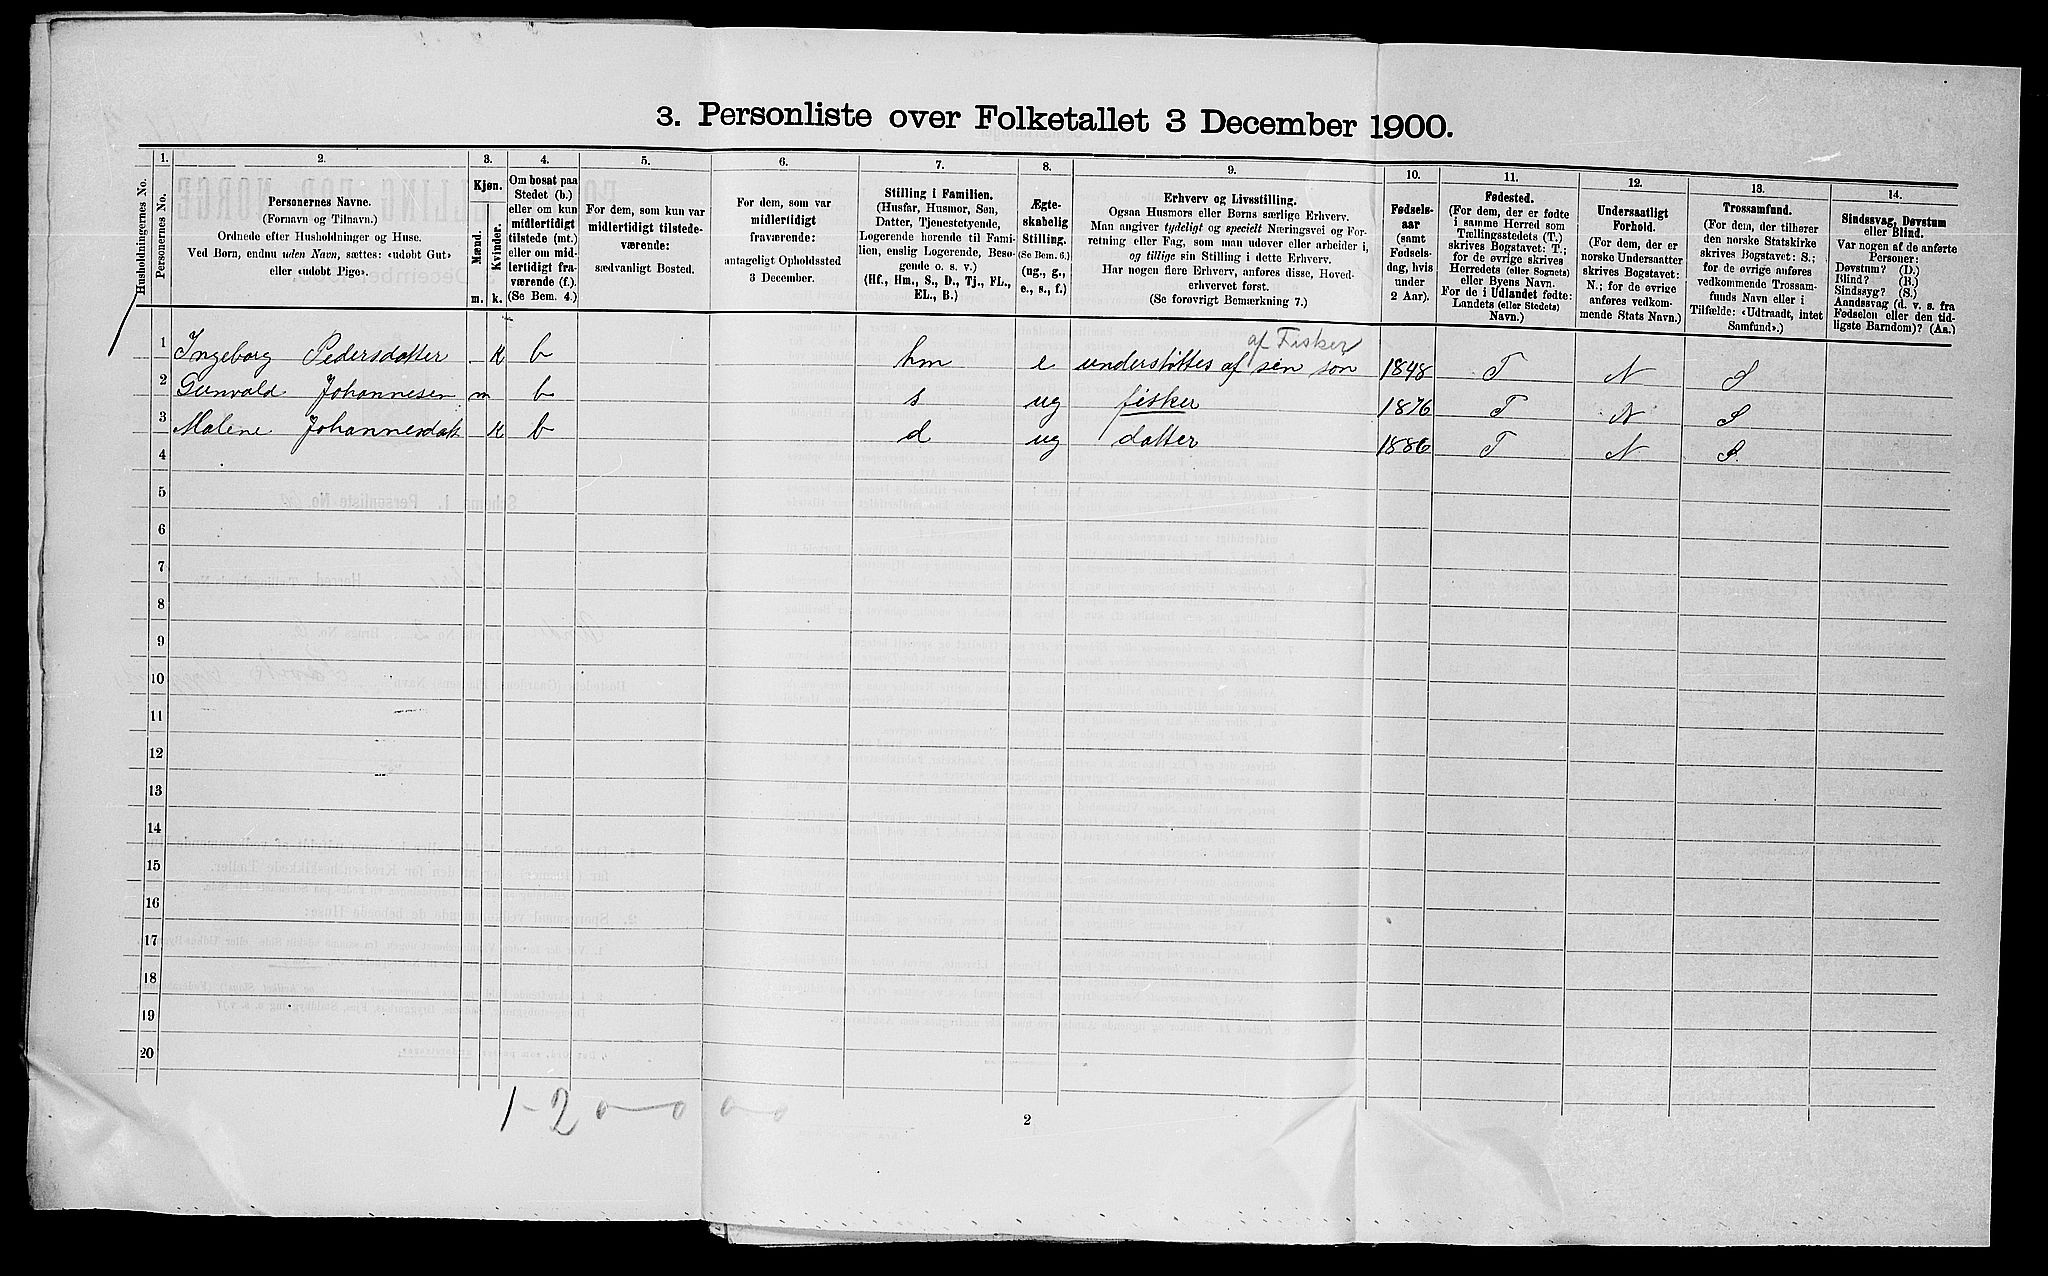 3. Personliste over Folketallet 3 December 1900.
Husholdningernes No.
1.
Personernes No.
2.
Personernes Navne.
(Fornavn og Tilnavn.)
Ordnede efter Husholdninger og Huse.
Ved Børn, endnu uden Navn, sættes: «udobt Gut»
eller «udobt Pige».
3.
Kjøn.
Mænd.
Kvinder.
m. k.
4.
Om bosat paa
Stedet (b.)
eller om kun
midlertidigt
tilstede (mt.)
eller om mid-
lertidigt fra-
værende (f.).
(Se Bem. 4.)
5.
For dem, som kun var
midlertidigt tilstede-
værende:
sædvanligt Bosted.
6.
For dem, som var
midlertidigt
fraværende:
antageligt Opholdssted
3 December.
7.
Stilling i Familien.
(Husfar, Husmor, Søn,
Datter, Tjenestetyende,
Logerende hørende til Fami-
lien, enslig Logerende, Besø-
gende o. s. v.)
(Hf., Hm., S., D., Tj., FL.,
EL., B.)
8.
Ægte-
skabelig
Stilling.
(Se Bem. 6.)
(ug., g.,
e., s., f.)
9.
Erhverv og Livsstilling.
Ogsaa Husmors eller Børns særlige Erhverv.
Man angiver tydeligt og specielt Næringsvei og For-
retning eller Fag, som man udøver eller arbeider i,
og tillige sin Stilling i dette Erhverv.
Har nogen flere Erhverv, anføres disse, Hoved-
erhvervet først.
(Se forøvrigt Bemærkning 7.)
10.
Fødsels-
aar
(samt
Fødsels-
dag, hvis
under
2 Aar).
11.
Fødested.
(For dem, der er fødte
i samme Herred som
Tællingsstedets (T.)
skrives Bogstavet: T.;
for de øvrige skrives
Herredets (eller Sognets)
eller Byens Navn.
For de i Udlandet fødte:
Landets (eller Stedets)
Navn.)
12.
Undersaatligt
Forhold.
(For dem, der er
norske Undersaatter
skrives Bogstavet:
N.; for de øvrige
anføres vedkom-
mende Stats Navn.)
13.
Trossamfund.
(For dem, der tilhører
den norske Statskirke
skrives Bogstavet: S.;
for de øvrige anføres
vedkommende Trossam-
funds Navn eller i
Tilfælde: «Udtraadt, intet
Samfund».)
14.
Sindssvag, Døvstum
eller Blind.
Var nogen af de anførte
Personer:
Døvstum? (D.)
Blind? (B.)
Sindssyg? (S.)
Aandssvag (d. v. s. fra
Fødselen eller den tid-
ligste Barndom)? (Aa.)
af Fisker
1 Ingeborg Pedersdatter k b hm e understøttes af sin søn 1848 T N S
2 Gunvald Johannesen m b s ug fisker 1876 T N S
3 Malene Johannesdat k b d ug datter 1886 T N S.
4
5
6
7
8
9
10
11
12
13
14
15
16
17
18
19
20
1-2 0-0 0 0
2